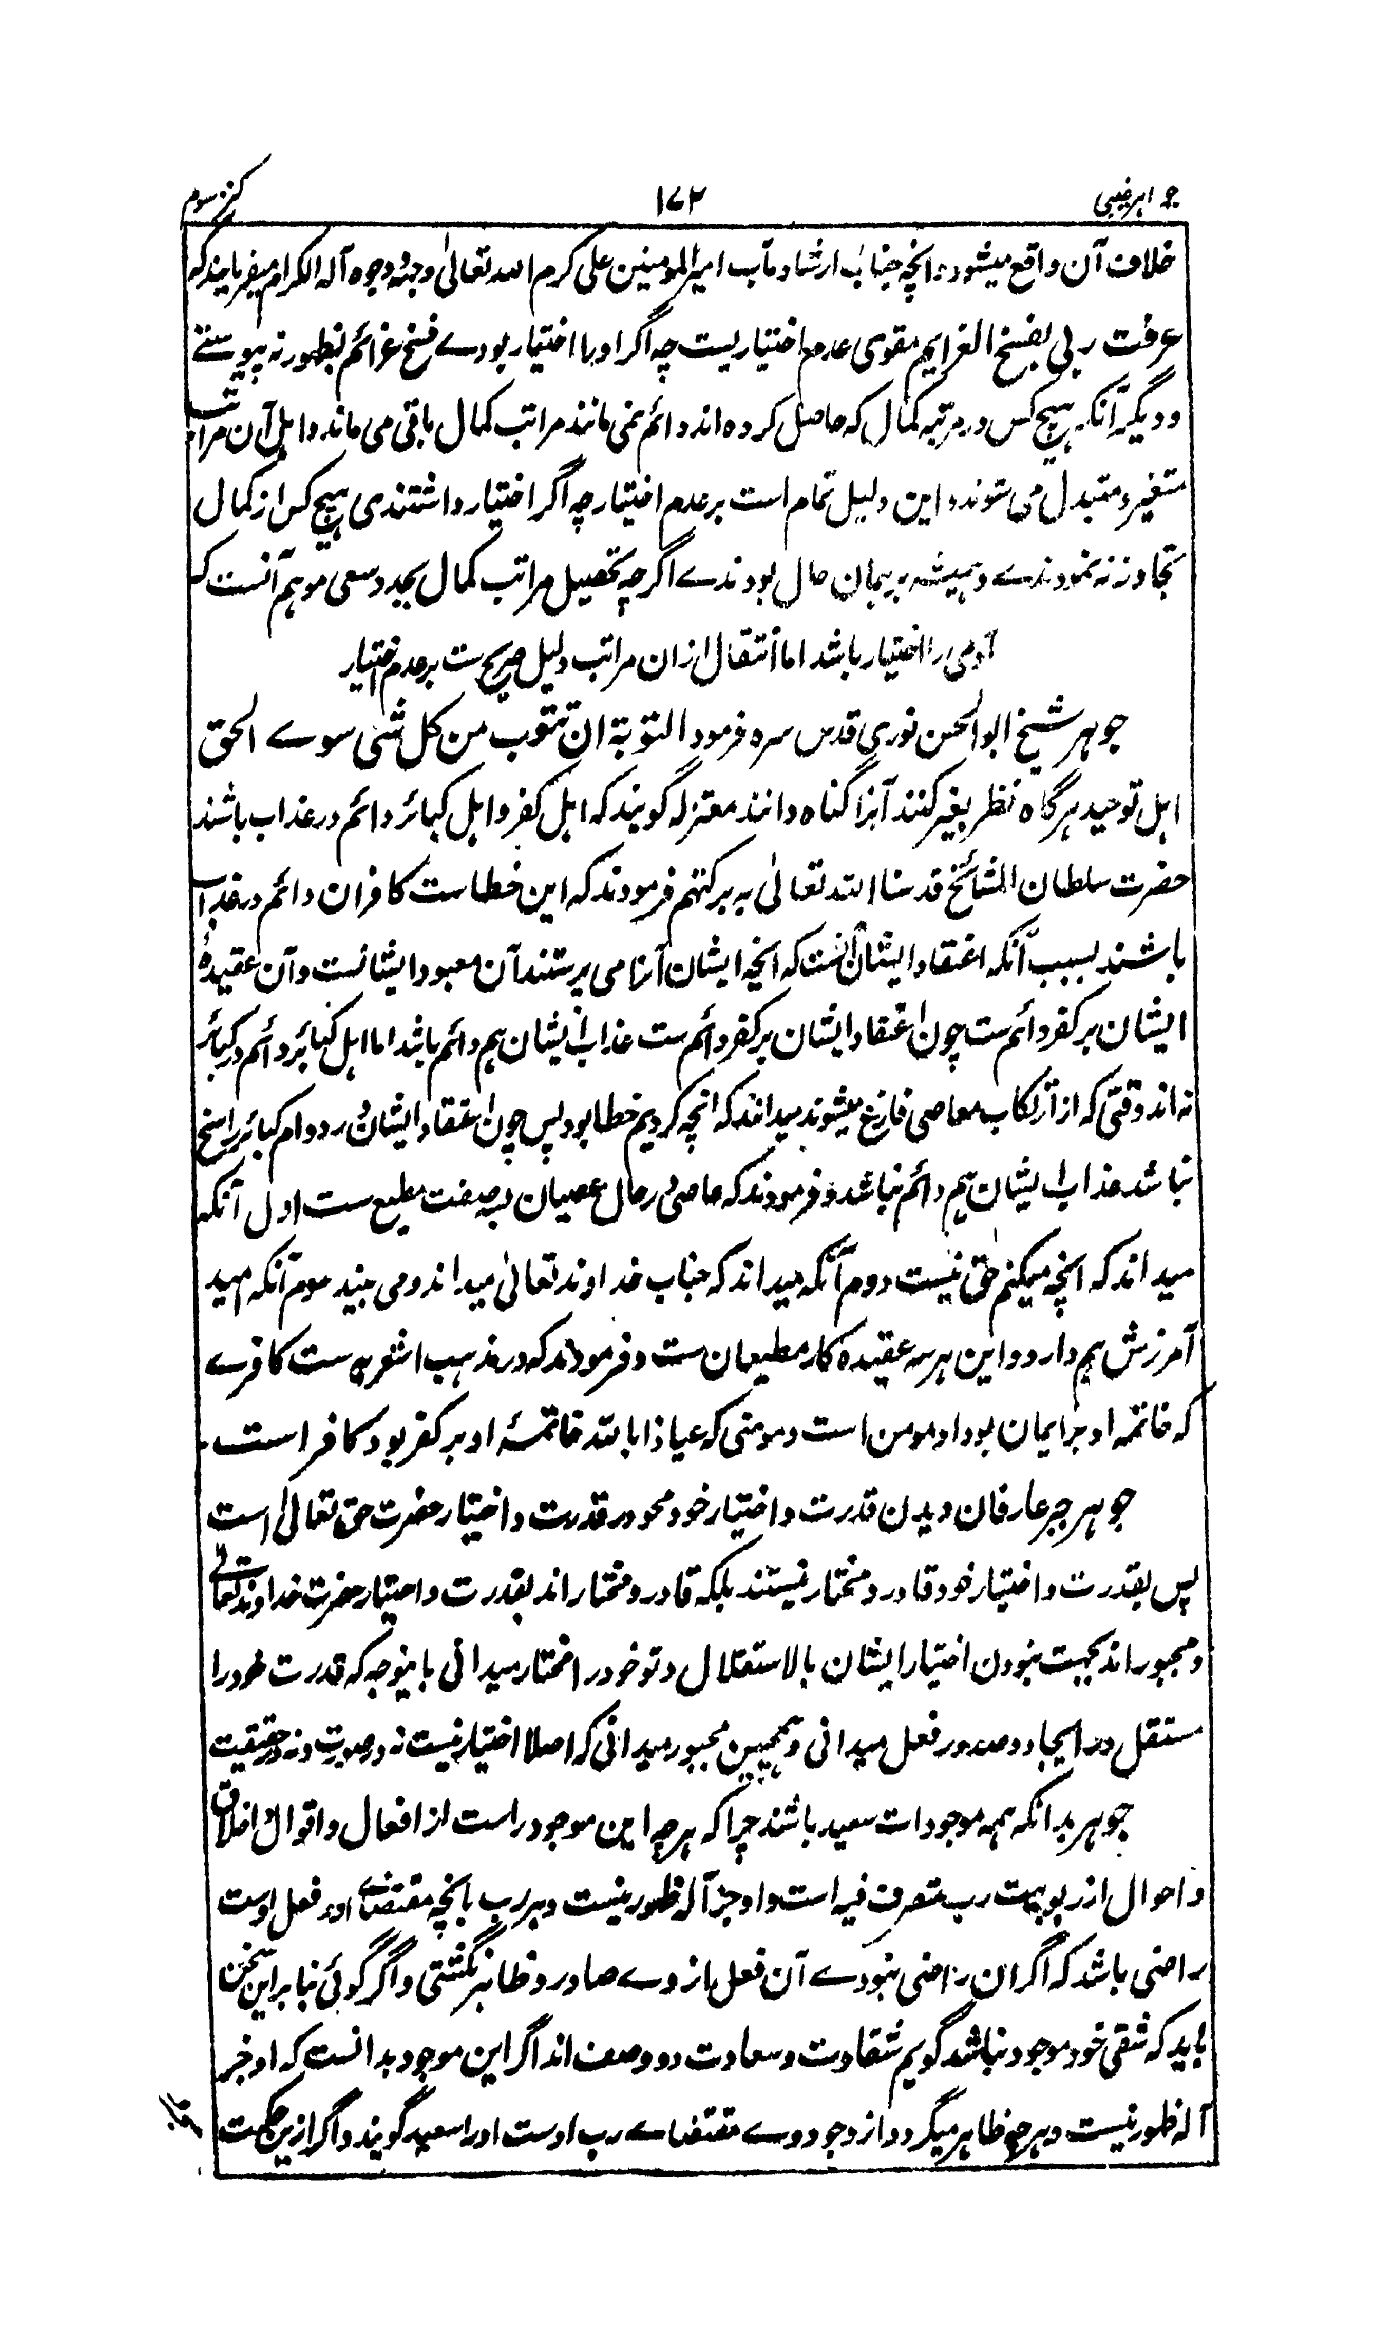 جواهر غیبی ۱۷۲ کنز سوم
خلاف آن واقع میشود و انچه جناب ارشاد مآب امیرالمومنین علی کرم الله تعالیٰ وجهه و وجوه آله الکرام میفرمایند که
عرفت ربی بفسخ العزایم مقوی عدم اختیاریست چه اگر او را اختیار بودے فسخ عزائم بظهور نه پیوستے
و دیگر آنکه هیچ کس در مرتبه کمال که حاصل کرده اند دائم نمی مانند مراتب کمال باقی می ماند و اهل آن مراتب
متغیر و متبدل می شوند و این دلیل تمام است بر عدم اختیار چه اگر اختیار داشتندی هیچ کس از کمال
تجاوز نه نمودندے و همیشه بر همان حال بودندے اگرچه تحصیل مراتب کمال بجد و سعی موهم آنست که
آدمی را اختیار باشد اما انتقال ازان مراتب دلیل صریح ست بر عدم اختیار
جوهر شیخ ابوالحسن نوری قدس سره فرمود التوبة ان تتوب من کل شئی سوے الحق
اهل توحید هرگاه نظر بغیر کنند آنرا گناه دانند معتزله گویند که اهل کفر و اهل کبائر دائم در عذاب باشند
حضرت سلطان المشائخ قدسنا الله تعالیٰ ببرکتهم فرمودند که این خطاست کافران دائم در عذاب
باشند بسبب آنکه اعتقاد ایشان آنست که انچه ایشان آنرا می پرستند آن معبود ایشانست و آن عقیدهٔ
ایشان بر کفر دائم ست چون اعتقاد ایشان بر کفر دائم ست عذاب ایشان هم دائم باشد اما اهل کبائر دائم در کبائر
نه اند وقتی که از ارتکاب معاصی فارغ میشوند میدانند که انچه کردیم خطا بود پس چون اعتقاد ایشان در دوام کبائر راسخ
نباشد عذاب ایشان هم دائم نباشد و فرمودند که عاصی در حال عصیان بسه صفت مطیع ست اول آنکه
میداند که انچه میکنم حق نیست دوم آنکه میداند که جناب خداوند تعالیٰ میداند و می بیند سوم آنکه امید
آمرزش هم دارد و این هر سه عقیده کار مطیعان ست و فرمودند که در مذهب اشعریه ست کافرے
که خاتمه او بر ایمان بود او مومن است و مومنی که عیاذا بالله خاتمهٔ او بر کفر بود کافر است
جوهر جبر عارفان دیدن قدرت و اختیار خود محو در قدرت و اختیار حضرت حق تعالیٰ است
پس بقدرت و اختیار خود قادر و مختار نیستند بلکه قادر و مختار اند بقدرت و اختیار حضرت خداوند تعالےٰ
و مجبور اند بجهت نبودن اختیار ایشان بالاستقلال و تو خود را مختار میدانی باینوجه که قدرت خود را
مستقل در ایجاد و صدور فعل میدانی و همچنین مجبور میدانی که اصلا اختیار نیست نه در صورت و نه در حقیقت
جوهر بدانکه همه موجودات سعید باشند چرا که هرچه این موجود راست از افعال و اقوال و اخلاق
و احوال از ربوبیت رب متصرف فیه است و او جز آله ظهور نیست و هر رب بانچه مقتضاے او و فعل اوست
راضی باشد که اگر ان راضی نبودے آن فعل از وے صادر و ظاهر نگشتی و اگر گوئی بنا بر این سخن
باید که شقی خود موجود نباشد گویم شقاوت و سعادت دو وصف اند اگر این موجود بدانست که او جز
آله ظهور نیست و هر چه ظاهر میگردد از وجود وے مقتضاے رب اوست او را سعید گویند و اگر ازین حکمت